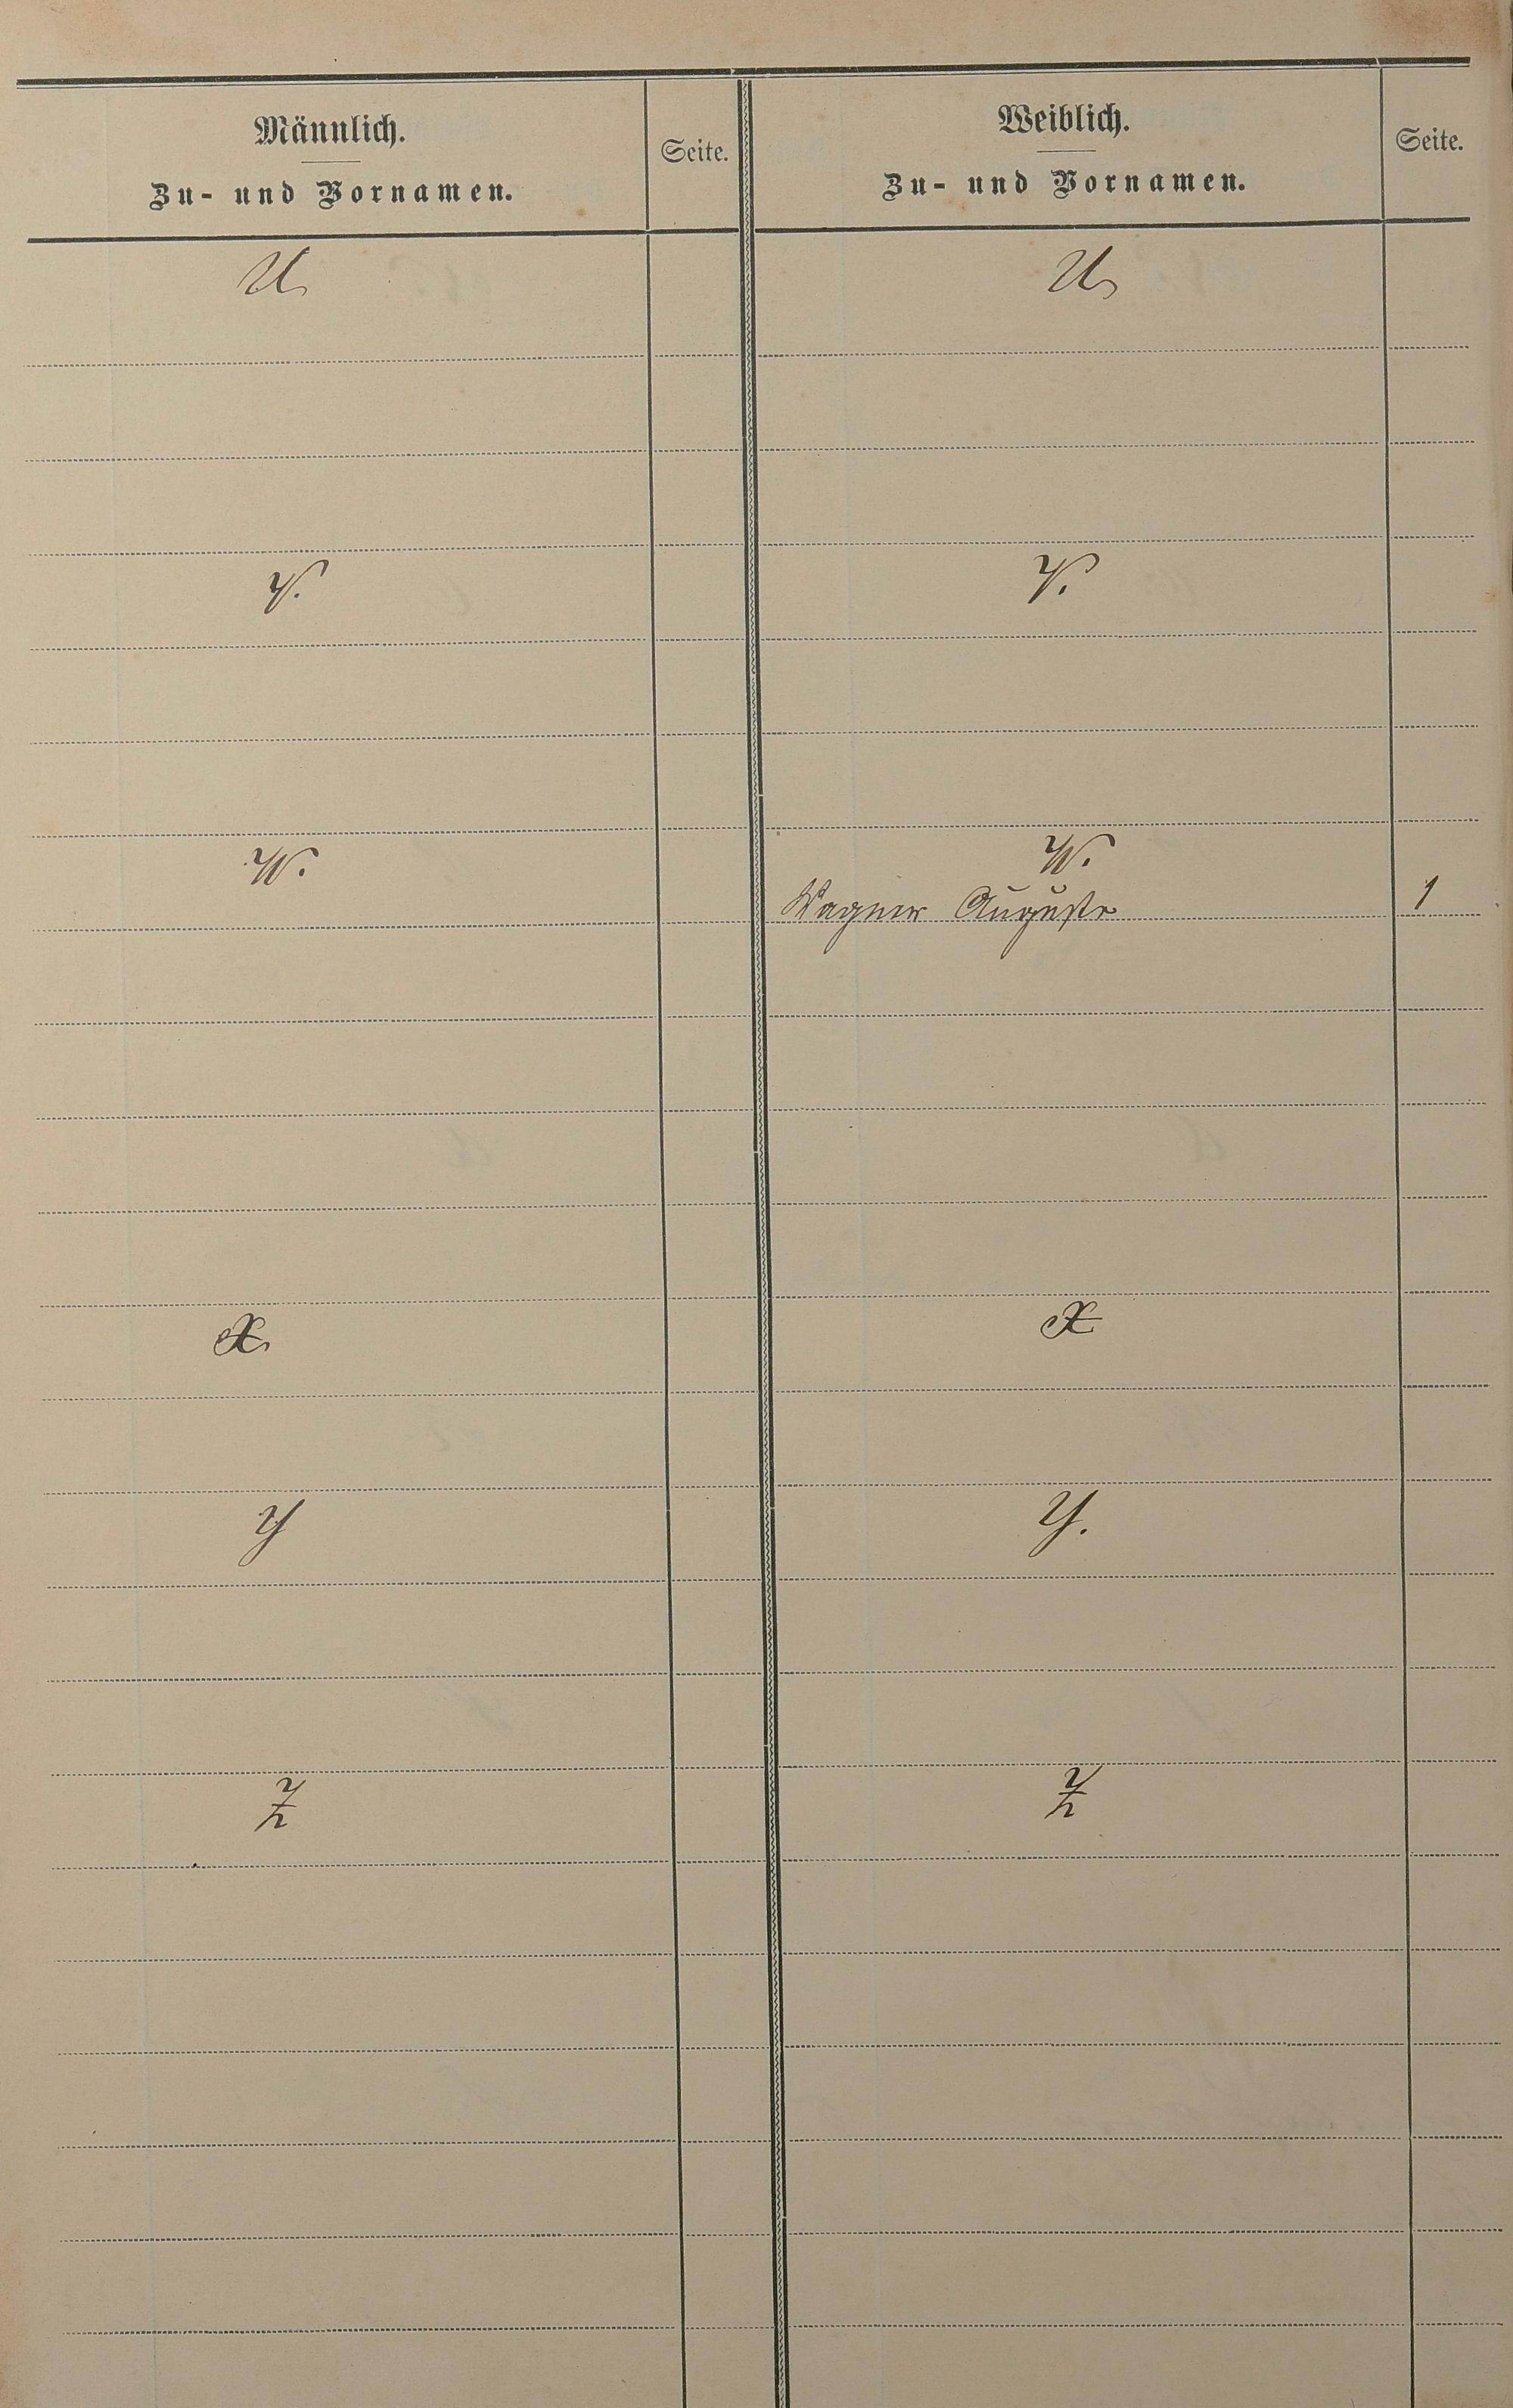 Männlich. Seite. Weiblich. Seite.
Zu- und Vornamen. Zu- und Vornamen.
U. U.
V. V.
W. W.
Wagner Auguste 1
X. X
Y Y.
Z Z